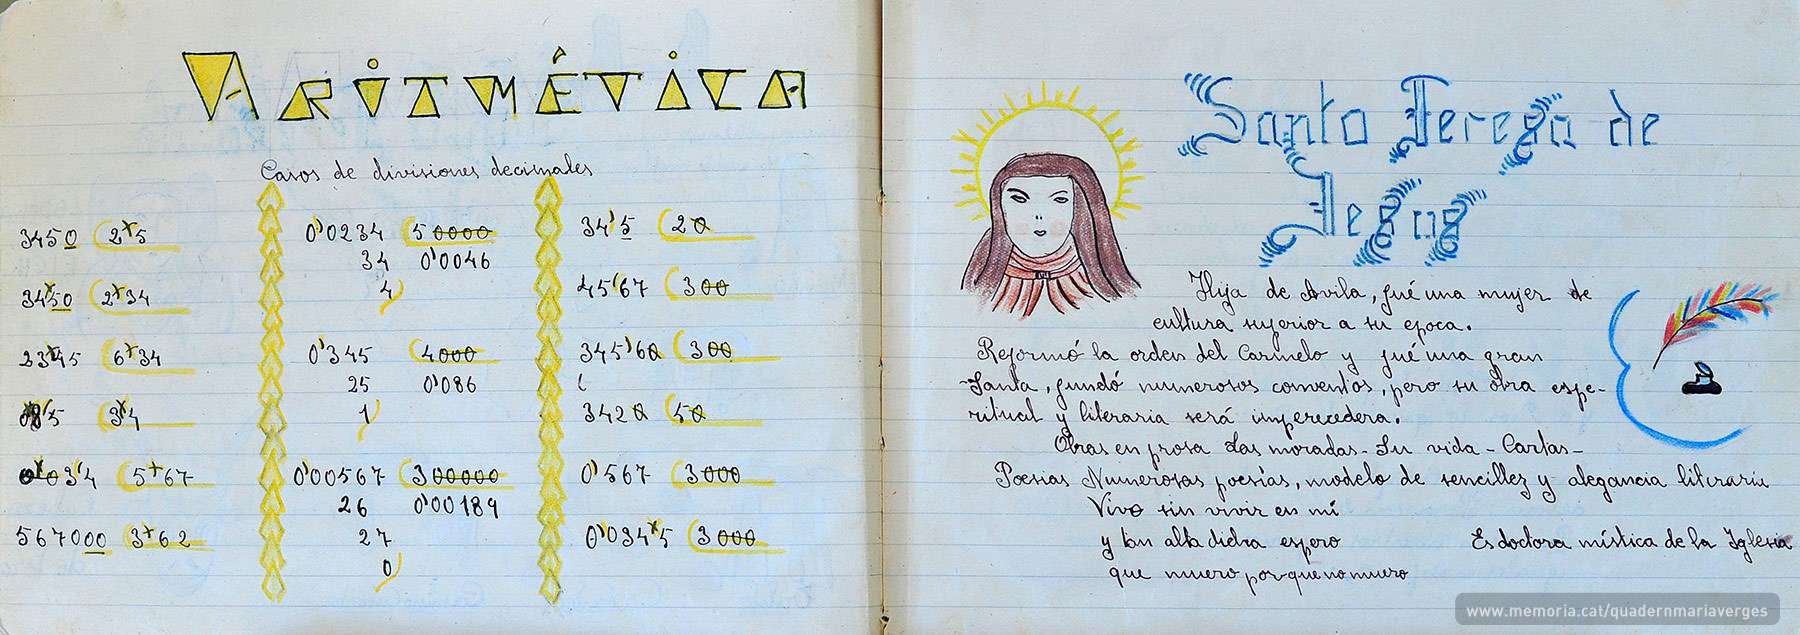 Aritmética
Casos de divisiones decimales
3450 2'5
3450 2'34
2345 6'34
3'4
034 5'67
567000 3'62
0'0234 50000
34 0'0046
4
0'345 4000
25 0'086
1
0'00567 300000
26 0'00189
27
0
34'5 20
45'67 300
345'60 300
3420 50
0'567 3000
0'034'5 3000
Santa Teresa de
Jesus
Hija de Avila, fué una mujer de
cultura superior a su epoca.
Reformó la orden del Carmelo y fué una gran
Santa, fundó numerosos conventos, pero su obra espe-
ritual y literaria será imperecedera.
Obras en prosa Las moradas - Su vida - Cartas -
Poesias Numerosas poesías, modelo de sencillez y alegancia literaria
Vivo sin vivir en mí
y tan alta dicha espero
que muero porque no muero
Es doctora mística de la Iglesia
www.memoria.cat/quadernmariaverges